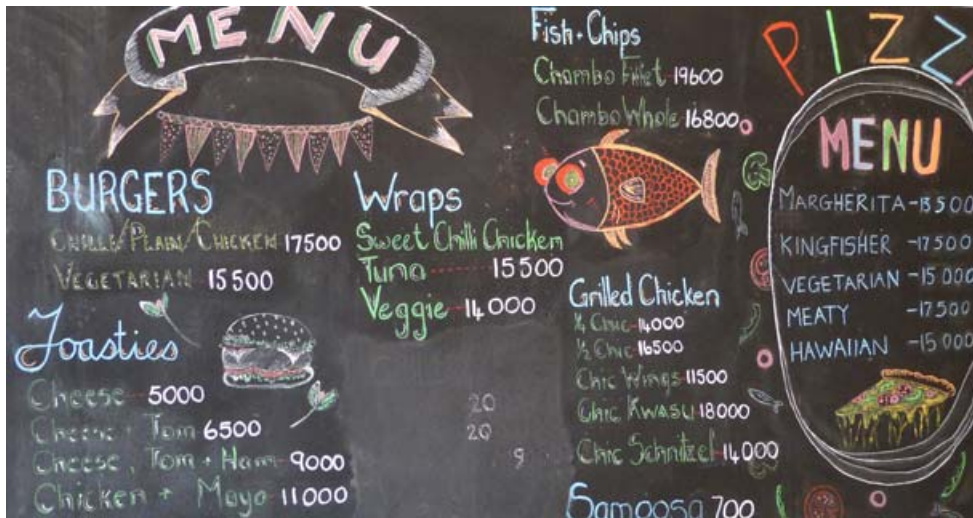 MENU
BURGERS
CHILLE/PLAIN/CHICKEN 17500
VEGETARIAN 15500
Toasties
Cheese 5000
Cheese + Tom 6500
Cheese, Tom + Ham 9000
Chicken + Mayo 11000
Wraps
Sweet Chilli Chicken
Tuna 15500
Veggie 14000
20
20
9
Fish + Chips
Chambo Fillet 19600
Chambo Whole 16800
Grilled Chicken
1/4 Chic 14000
1/2 Chic 16500
Chic Wings 11500
Chic Kwasu 18000
Chic Schnitzel 14000
Samoosa 700
PIZZ
MENU
MARGHERITA - 13500
KINGFISHER - 17500
VEGETARIAN - 15000
MEATY - 17500
HAWAIIAN - 15000